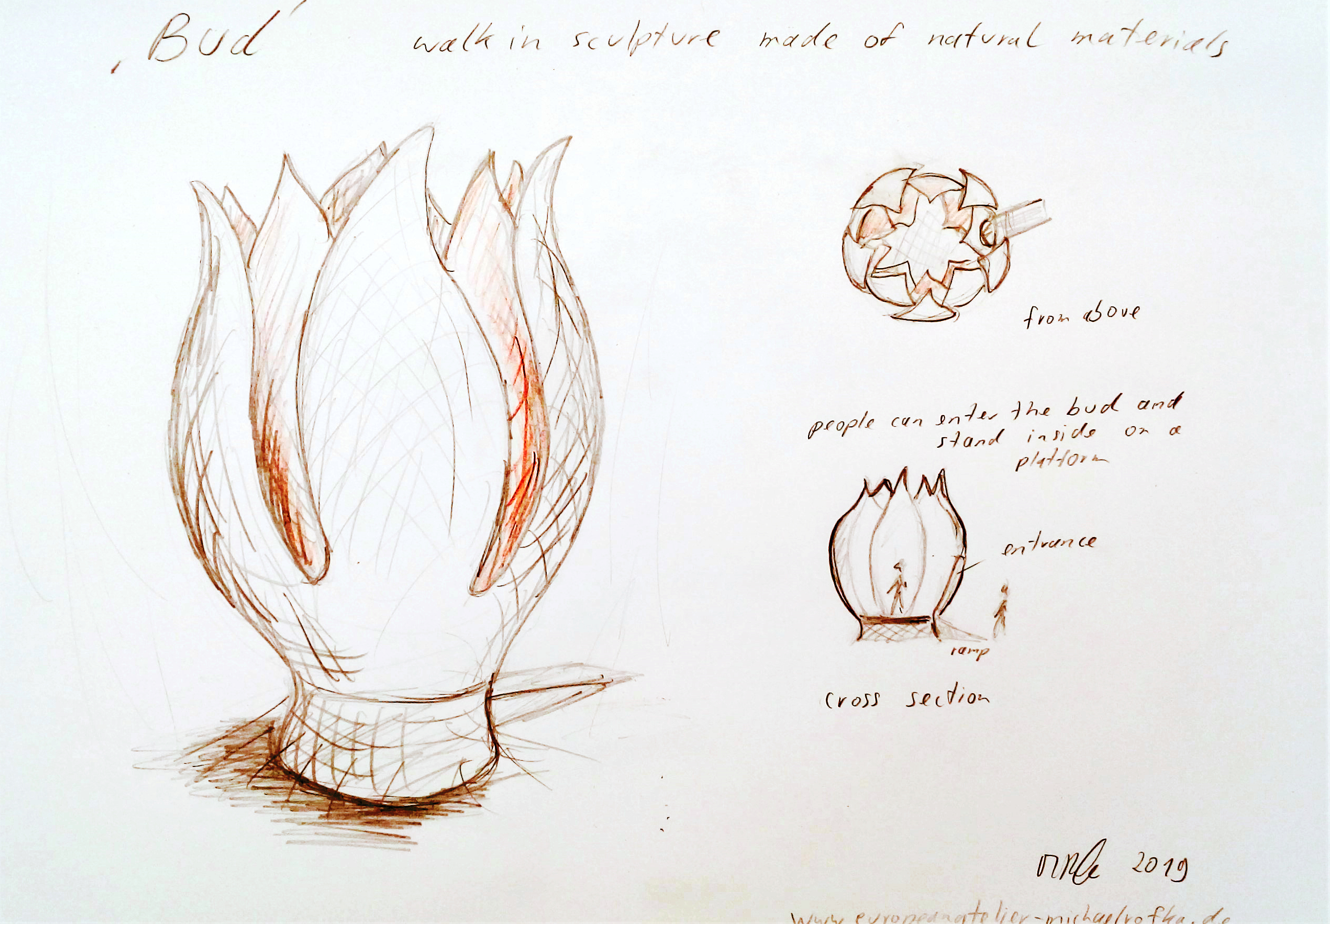 ‚Bud’ walk in sculpture made of natural materials
from above
people can enter the bud and
stand inside on a
platform
entrance
ramp
cross section
2019
www.europeanatelier-michaelrofka.de